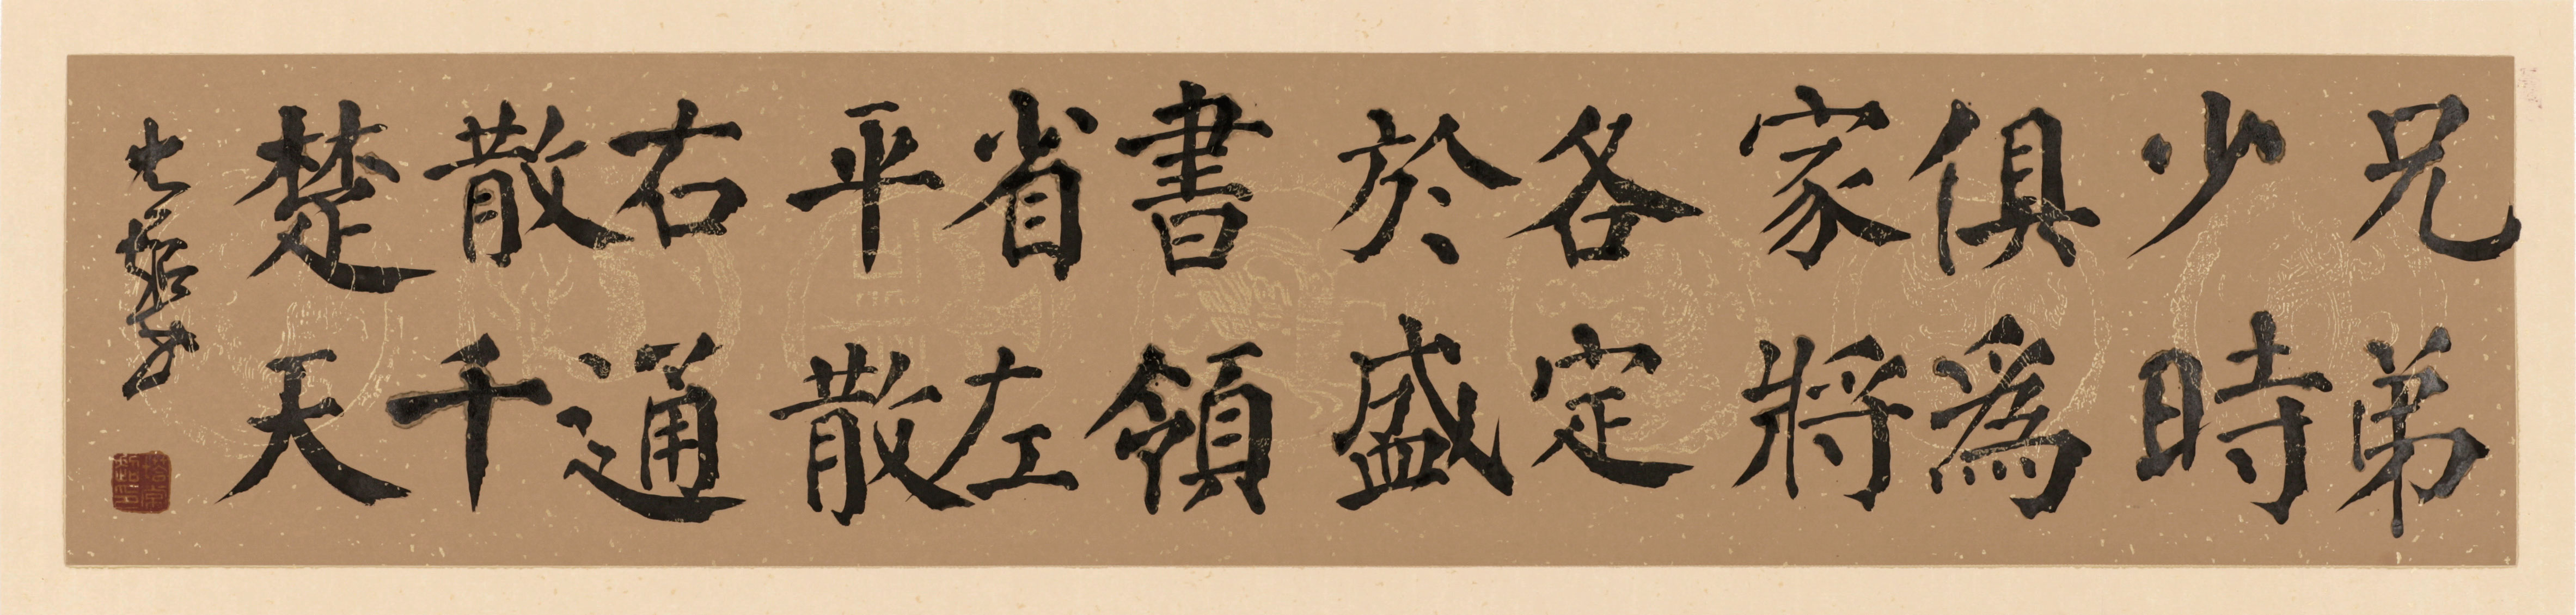 兄弟
少時
俱為
家將
各定
於盛
書領
省左
平散
右通
散千
楚天